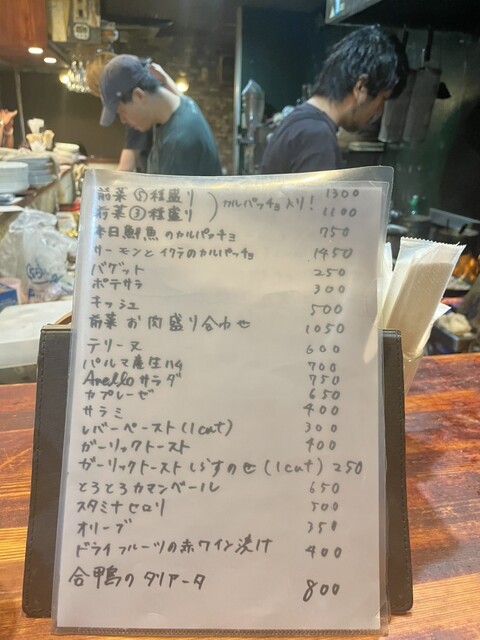 前菜⑤種盛り 1300
前菜③種盛り ) カルパッチョ入り! 1100
本日鮮魚のカルパッチョ 750
サーモンとイクラのカルパッチョ 1450
バゲット 250
ポテサラ 300
キッシュ 500
前菜お肉盛り合わせ 1050
テリーヌ 600
パルマ産生ハム 700
Anelloサラダ 750
カプレーゼ 650
サラミ 400
レバーペースト(1cut) 300
ガーリックトースト 400
ガーリックトーストしらすのせ(1cut) 250
とろとろカマンベール 650
スタミナセロリ 500
オリーブ 350
ドライフルーツの赤ワイン漬け 400
合鴨のタリアータ 800